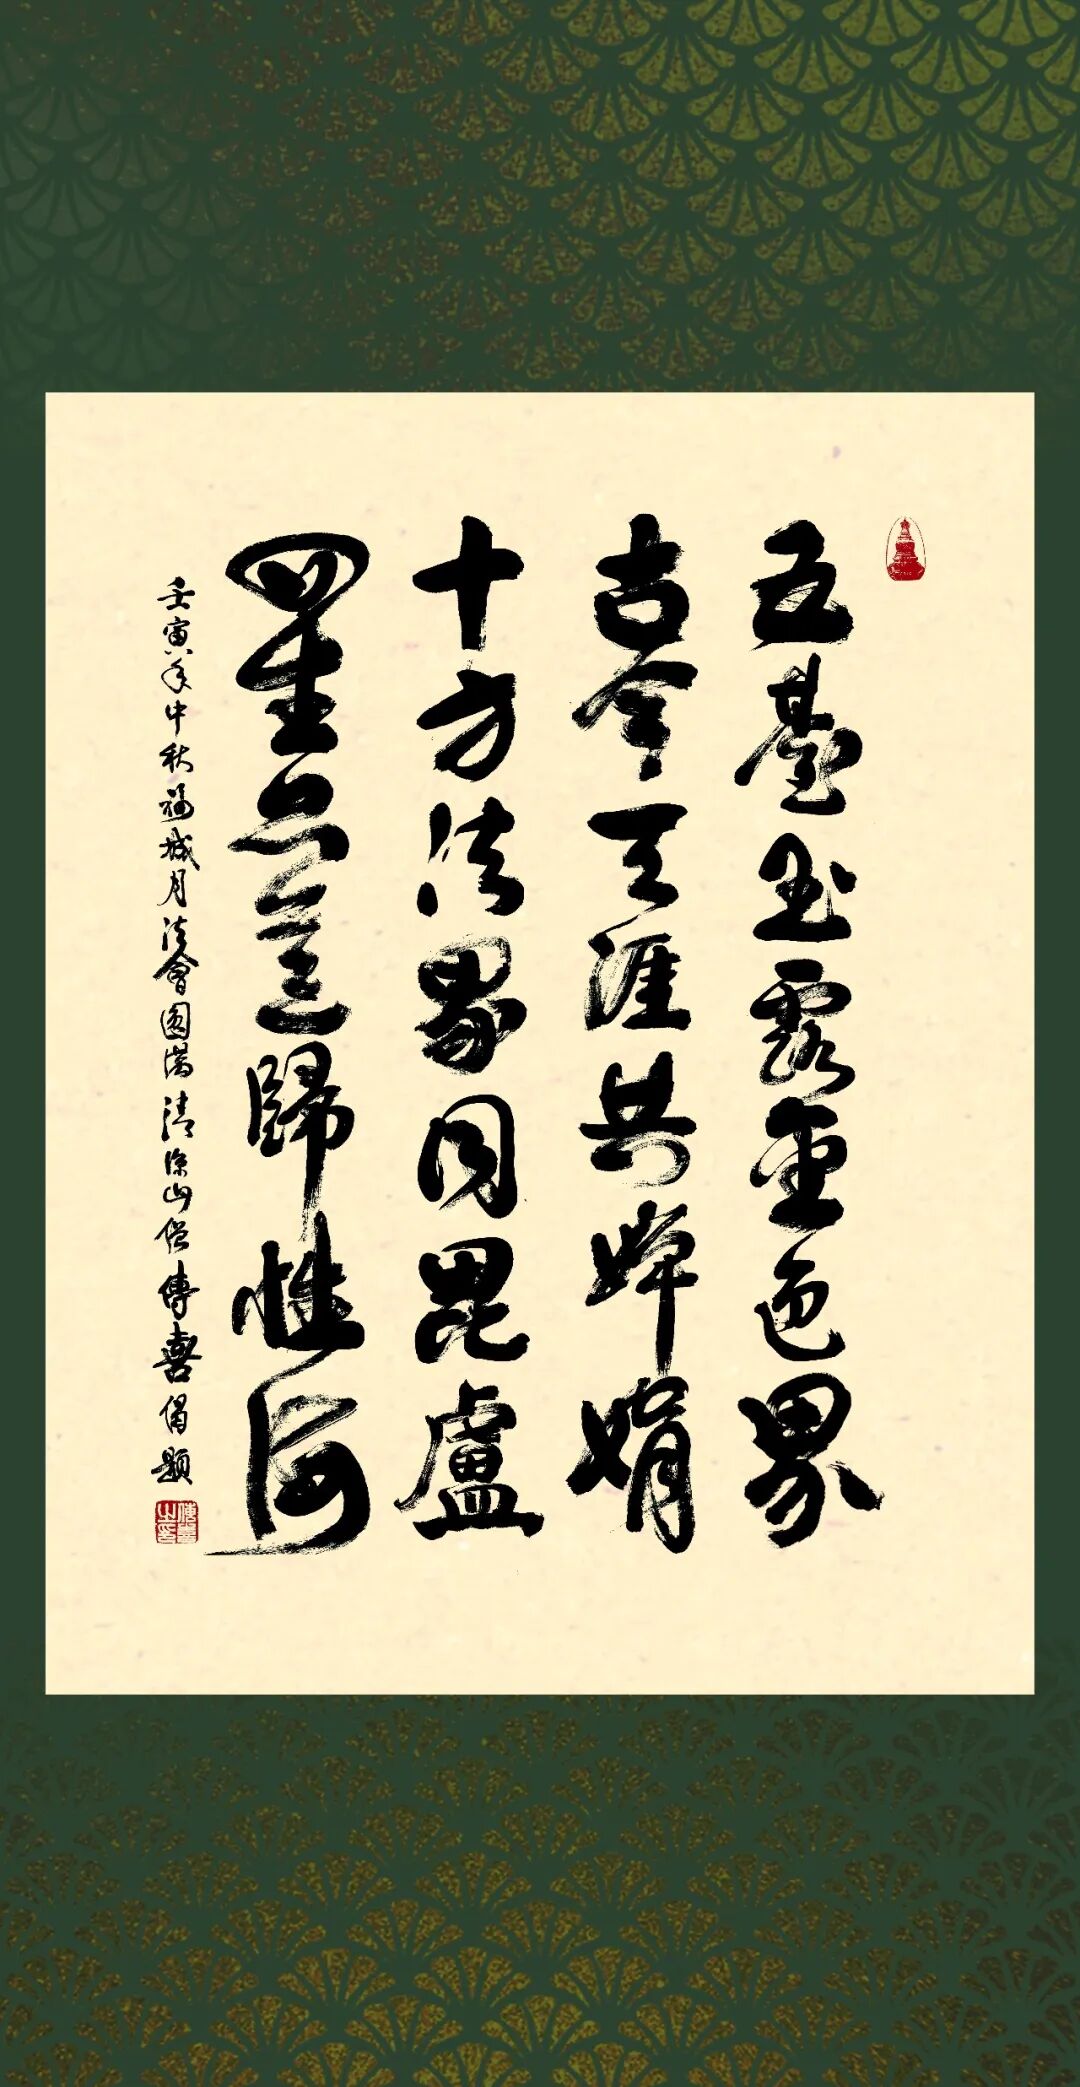 五臺玉露金色界
古今天涯共婵娟
十方法界同毘盧
四生六道歸性海
壬寅年中秋福城月法會圓滿清涼山僧傳喜偈題